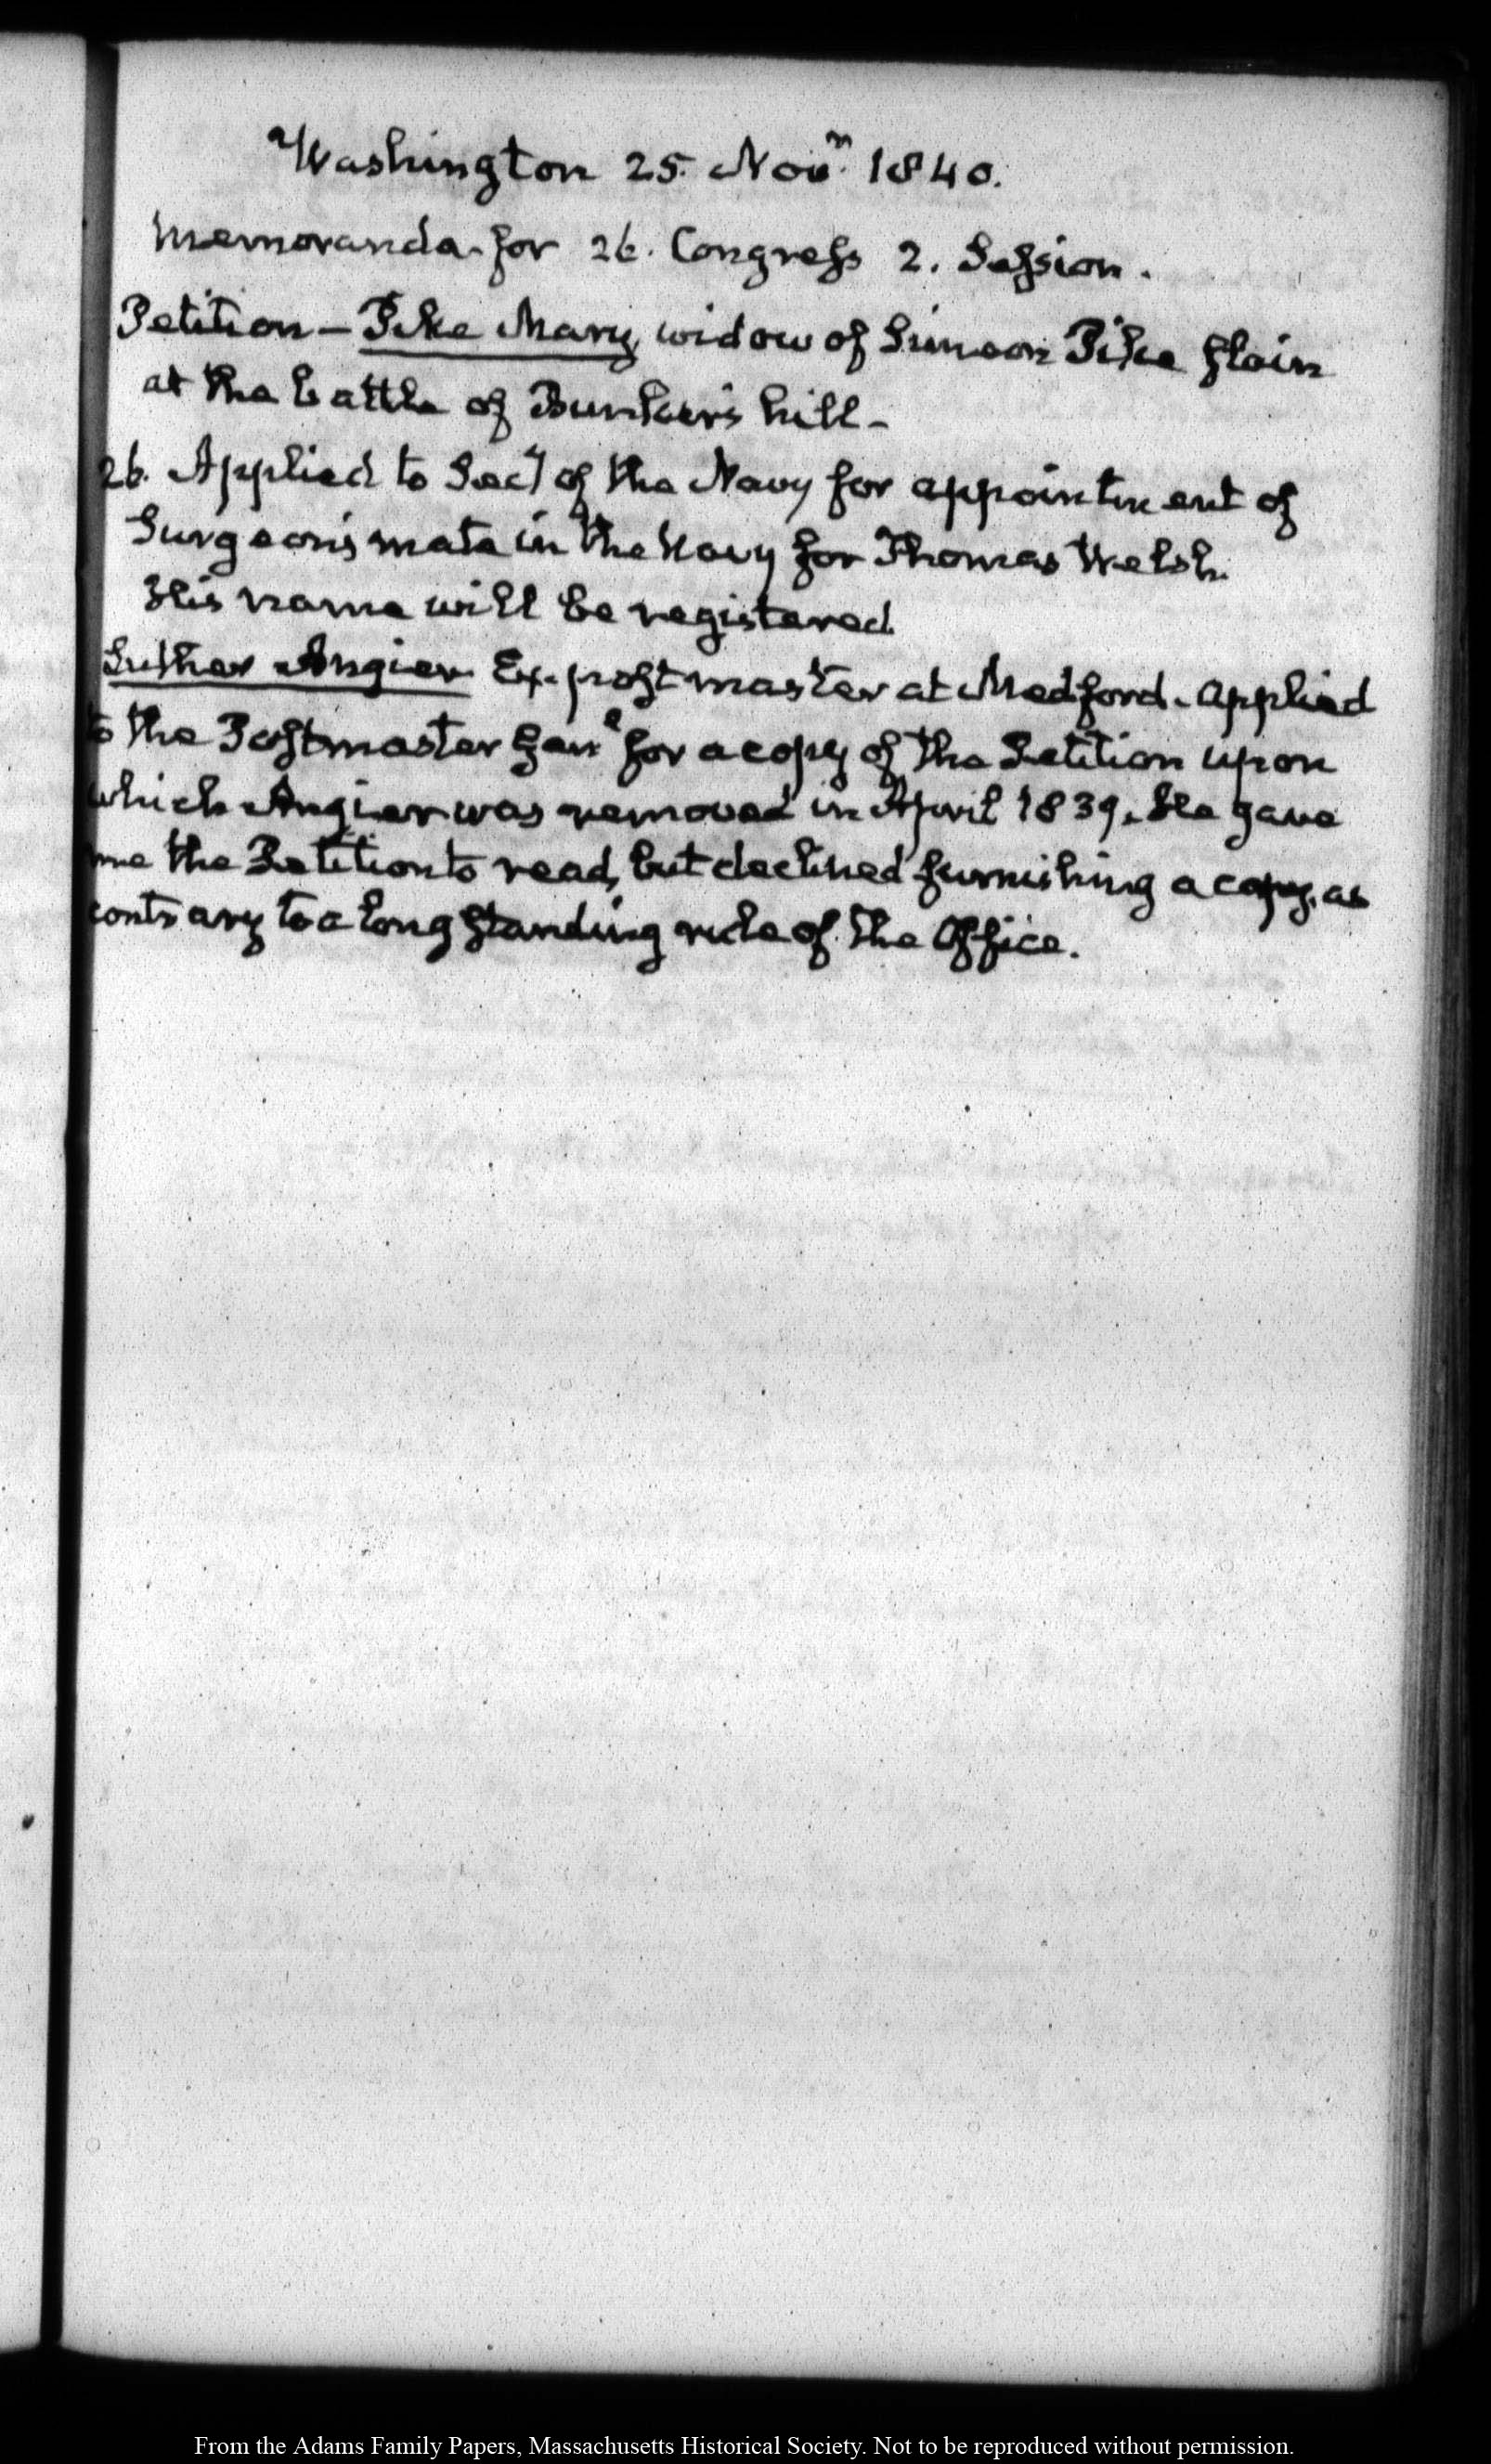 Washington 25. Nov.r 1840.
Memoranda for 26. Congress 2. Session.
Petition — Pike Mary, widow of Simeon Pike slain
at the battle of Bunker's hill —
26. Applied to Secy of the Navy for appointment of
Surgeon's mate in the Navy for Thomas Welsh.
His name will be registered
Luther Angier. Ex-postmaster at Medford. applied
to the Postmaster Genl for a copy of the Petition upon
which Angier was removed in April 1839. He gave
me the Petition to read, but declined furnishing a copy, as
contrary to a long standing rule of the Office.
From the Adams Family Papers, Massachusetts Historical Society. Not to be reproduced without permission.